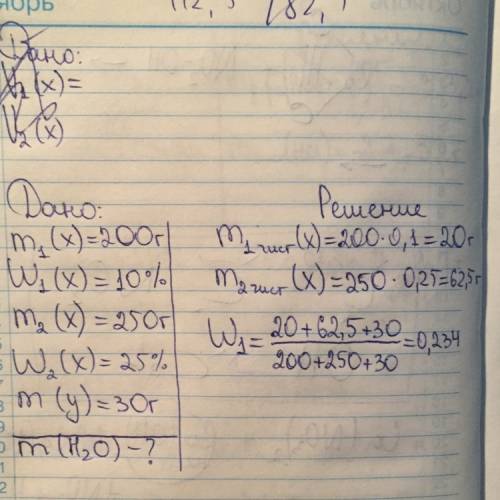 Октябрь
112,5 / 82,
Дано:
V₁(x)=
V₂(x)
Дано:
m₁(x)=200г
W₁(x)=10%
m₂(x)=250г
W₂(x)=25%
m(y)=30г
m(H₂O)-?
Решение
m₁ чист(x)=200·0,1=20г
m₂ чист(x)=250·0,25=62,5г
W₁= (20+62,5+30)/(200+250+30) =0,234